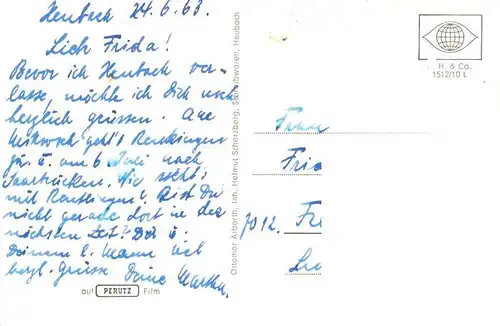 Heubach 24.6.63.
Lieb Frida!
Bevor ich Heubach ver-
lasse, möchte ich Dich noch
herzlich grüssen. Am
Mittwoch geht's Reutlingen
zu. u. am 6 Juli nach
Saarbrücken. Wie steht's
mit Reutlingen? Bist Du
nicht gerade dort in der
nächsten Zeit? Dir u.
Deinem l. Mann viel
herzl. Grüsse Deine Martha.
auf PERUTZ Film
Ottomar Alberth, Inh. Helmut Scherzberg, Schreibwaren, Heubach
H. & Co.
1512/10 L
Frau
Frie
7012. Fe